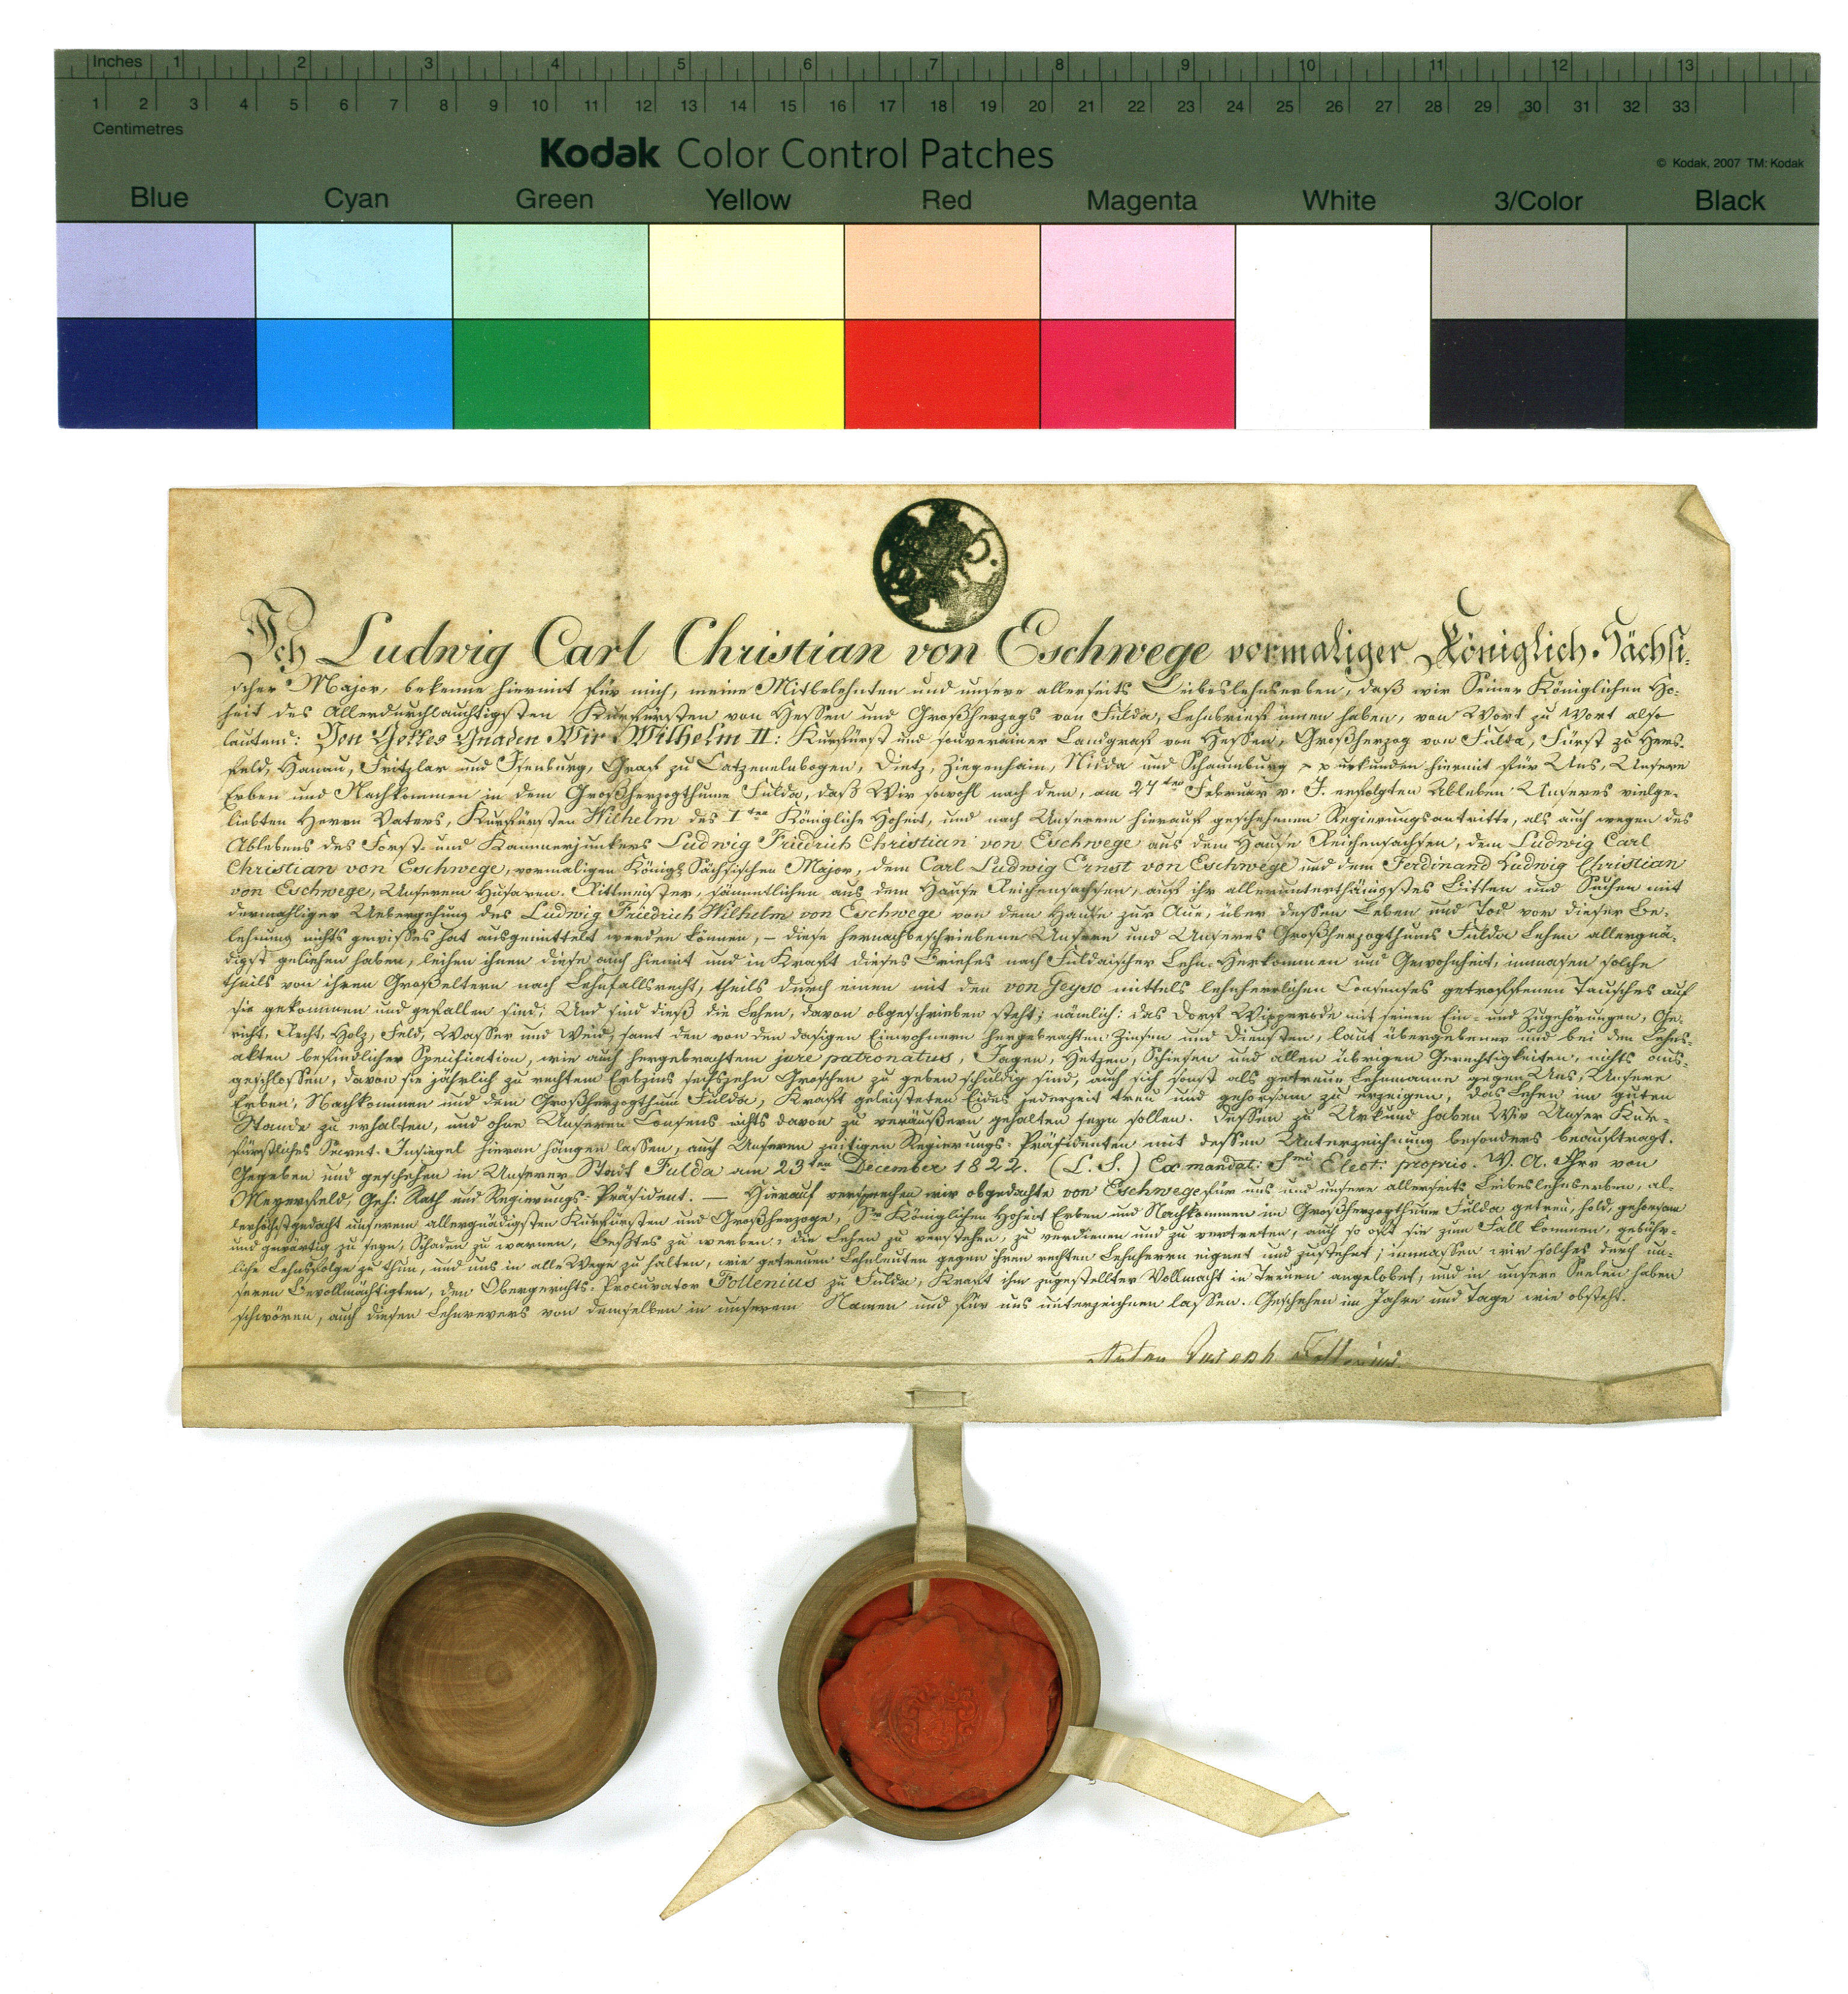 Inches 1 2 3 4 5 6 7 8 9 10 11 12 13
1 2 3 4 5 6 7 8 9 10 11 12 13 14 15 16 17 18 19 20 21 22 23 24 25 26 27 28 29 30 31 32 33
Centimetres
Kodak Color Control Patches
© Kodak, 2007 TM: Kodak
Blue Cyan Green Yellow Red Magenta White 3/Color Black
Ich Ludwig Carl Christian von Eschwege vormaliger Königlich-Sächsi-
scher Major, bekenne hiermit für mich, meine Mitbelehnten und unsere allerseits Leibeslehnserben, daß wir Seiner Königlichen Ho-
heit des Allerdurchlauchtigsten Kurfürsten von Hessen und Großherzogs von Fulda, Lehnbrief innen haben, von Wort zu Wort also
lautend: Von Gottes Gnaden Wir Wilhelm II: Kurfürst und souverainer Landgraf von Hessen, Großherzog von Fulda, Fürst zu Hers-
feld, Hanau, Fritzlar und Isenburg, Graf zu Catzenelnbogen, Dietz, Ziegenhain, Nidda und Schaumburg urkunden hiermit für Uns, Unsere
Erben und Nachkommen in dem Großherzogthume Fulda, daß Wir sowohl nach dem, am 27ten Februar v. J. erfolgten Ableben Unseres vielge-
liebten Herrn Vaters, Kurfürsten Wilhelm des Iten Königliche Hoheit, und nach Unserem hierauf geschehenen Regierungsantritte, als auch wegen des
Ablebens des Forst- und Kammerjunkers Ludwig Friedrich Christian von Eschwege aus dem Hause Reichensachsen, dem Ludwig Carl
Christian von Eschwege, vormaligen Königl. Sächsischen Major, dem Carl Ludwig Ernst von Eschwege und dem Ferdinand Ludwig Christian
von Eschwege, Unserem Husaren-Rittmeister, sämmtlichen aus dem Hause Reichensachsen, auf ihr allerunterthänigstes Bitten und Suchen mit
dermahliger Uebergehung des Ludwig Friedrich Wilhelm von Eschwege von dem Hause zur Aue, über dessen Leben und Tod vor dieser Be-
lehnung nichts gewisses hat ausgemittelt werden können, – diese hernachbeschriebene Unsere und Unseres Großherzogthums Fulda Lehen allergnä-
digst geliehen haben, leihen ihnen diese auch hiemit und in Kraft dieses Briefes nach Fuldaischer Lehn-Herkommen und Gewohnheit, inmasen solche
theils von ihren Großeltern nach Lehnfallsrecht, theils durch einen mit den von Geyso mittels lehnherrlichen Consenses getroffenen Tausches auf
sie gekommen und gefallen sind; Und sind dieß die Lehen, davon obgeschrieben steht; nämlich: das Dorf Wipperode mit seinen Ein- und Zugehörungen, Ge-
richt, Recht, Holz, Feld, Wasser und Weid, samt den von den dasigen Einwohnern hergebrachten Zinsen und Diensten, laut übergebener und bei den Lehns-
akten befindlicher Specification, wie auch hergebrachtem jure patronatus, Jagen, Hetzen, Schiesen und allen übrigen Gerechtigkeiten, nichts aus-
geschlossen, davon sie jährlich zu rechtem Erbzins sechszehn Groschen zu geben schuldig sind, auch sich sonst als getreue Lehnmanne gegen Uns, Unsere
Erben, Nachkommen und dem Großherzogthum Fulda, Kraft geleisteten Eides jederzeit treu und gehorsam zu erzeigen, das Lehen im guten
Stande zu erhalten, und ohne Unseren Consens nichts davon zu veräußern gehalten seyn sollen. Dessen zu Urkund haben Wir Unser Kur-
fürstliches Secret-Insiegel hieran hängen lassen, auch Unseren zeitigen Regierungs-Präsidenten mit dessen Unterzeichnung besonders beauftragt.
Gegeben und geschehen in Unserer Stadt Fulda am 23ten December 1822. (L. S.) Ex mandat: Smi Elect: proprio. W. A. Fhr von
Meyerfeld, Geh: Rath und Regierungs-Präsident. — Hierauf versprechen wir obgedachte von Eschwege für uns und unsere allerseits Leibeslehnserben, al-
lerhöchstgedacht unserem allergnädigsten Kurfürsten und Großherzoge, Sr Königlichen Hoheit Erben und Nachkommen im Großherzogthume Fulda getreu, hold, gehorsam
und gewärtig zu seyn, Schaden zu warnen, Bestes zu werben, die Lehen zu verstehen, zu verdienen und zu vertreten, auch so oft sie zum Fall kommen, gebühr-
liche Lehnsfolge zu thun, und uns in alle Wege zu halten, wie getreuen Lehnleuten gegen ihren rechten Lehnherrn eignet und zustehet; inmassen wir solches durch un-
seren Bevollmächtigten, den Obergerichts-Procurator Follenius zu Fulda, Kraft ihm zugestellter Vollmacht in Treuen angelobet, und in unsere Seelen haben
schwören, auch diesen Lehnrevers von demselben in unserem Namen und für uns unterzeichnen lassen. Geschehen im Jahre und Tage wie obsteht.
Anton Joseph Follenius